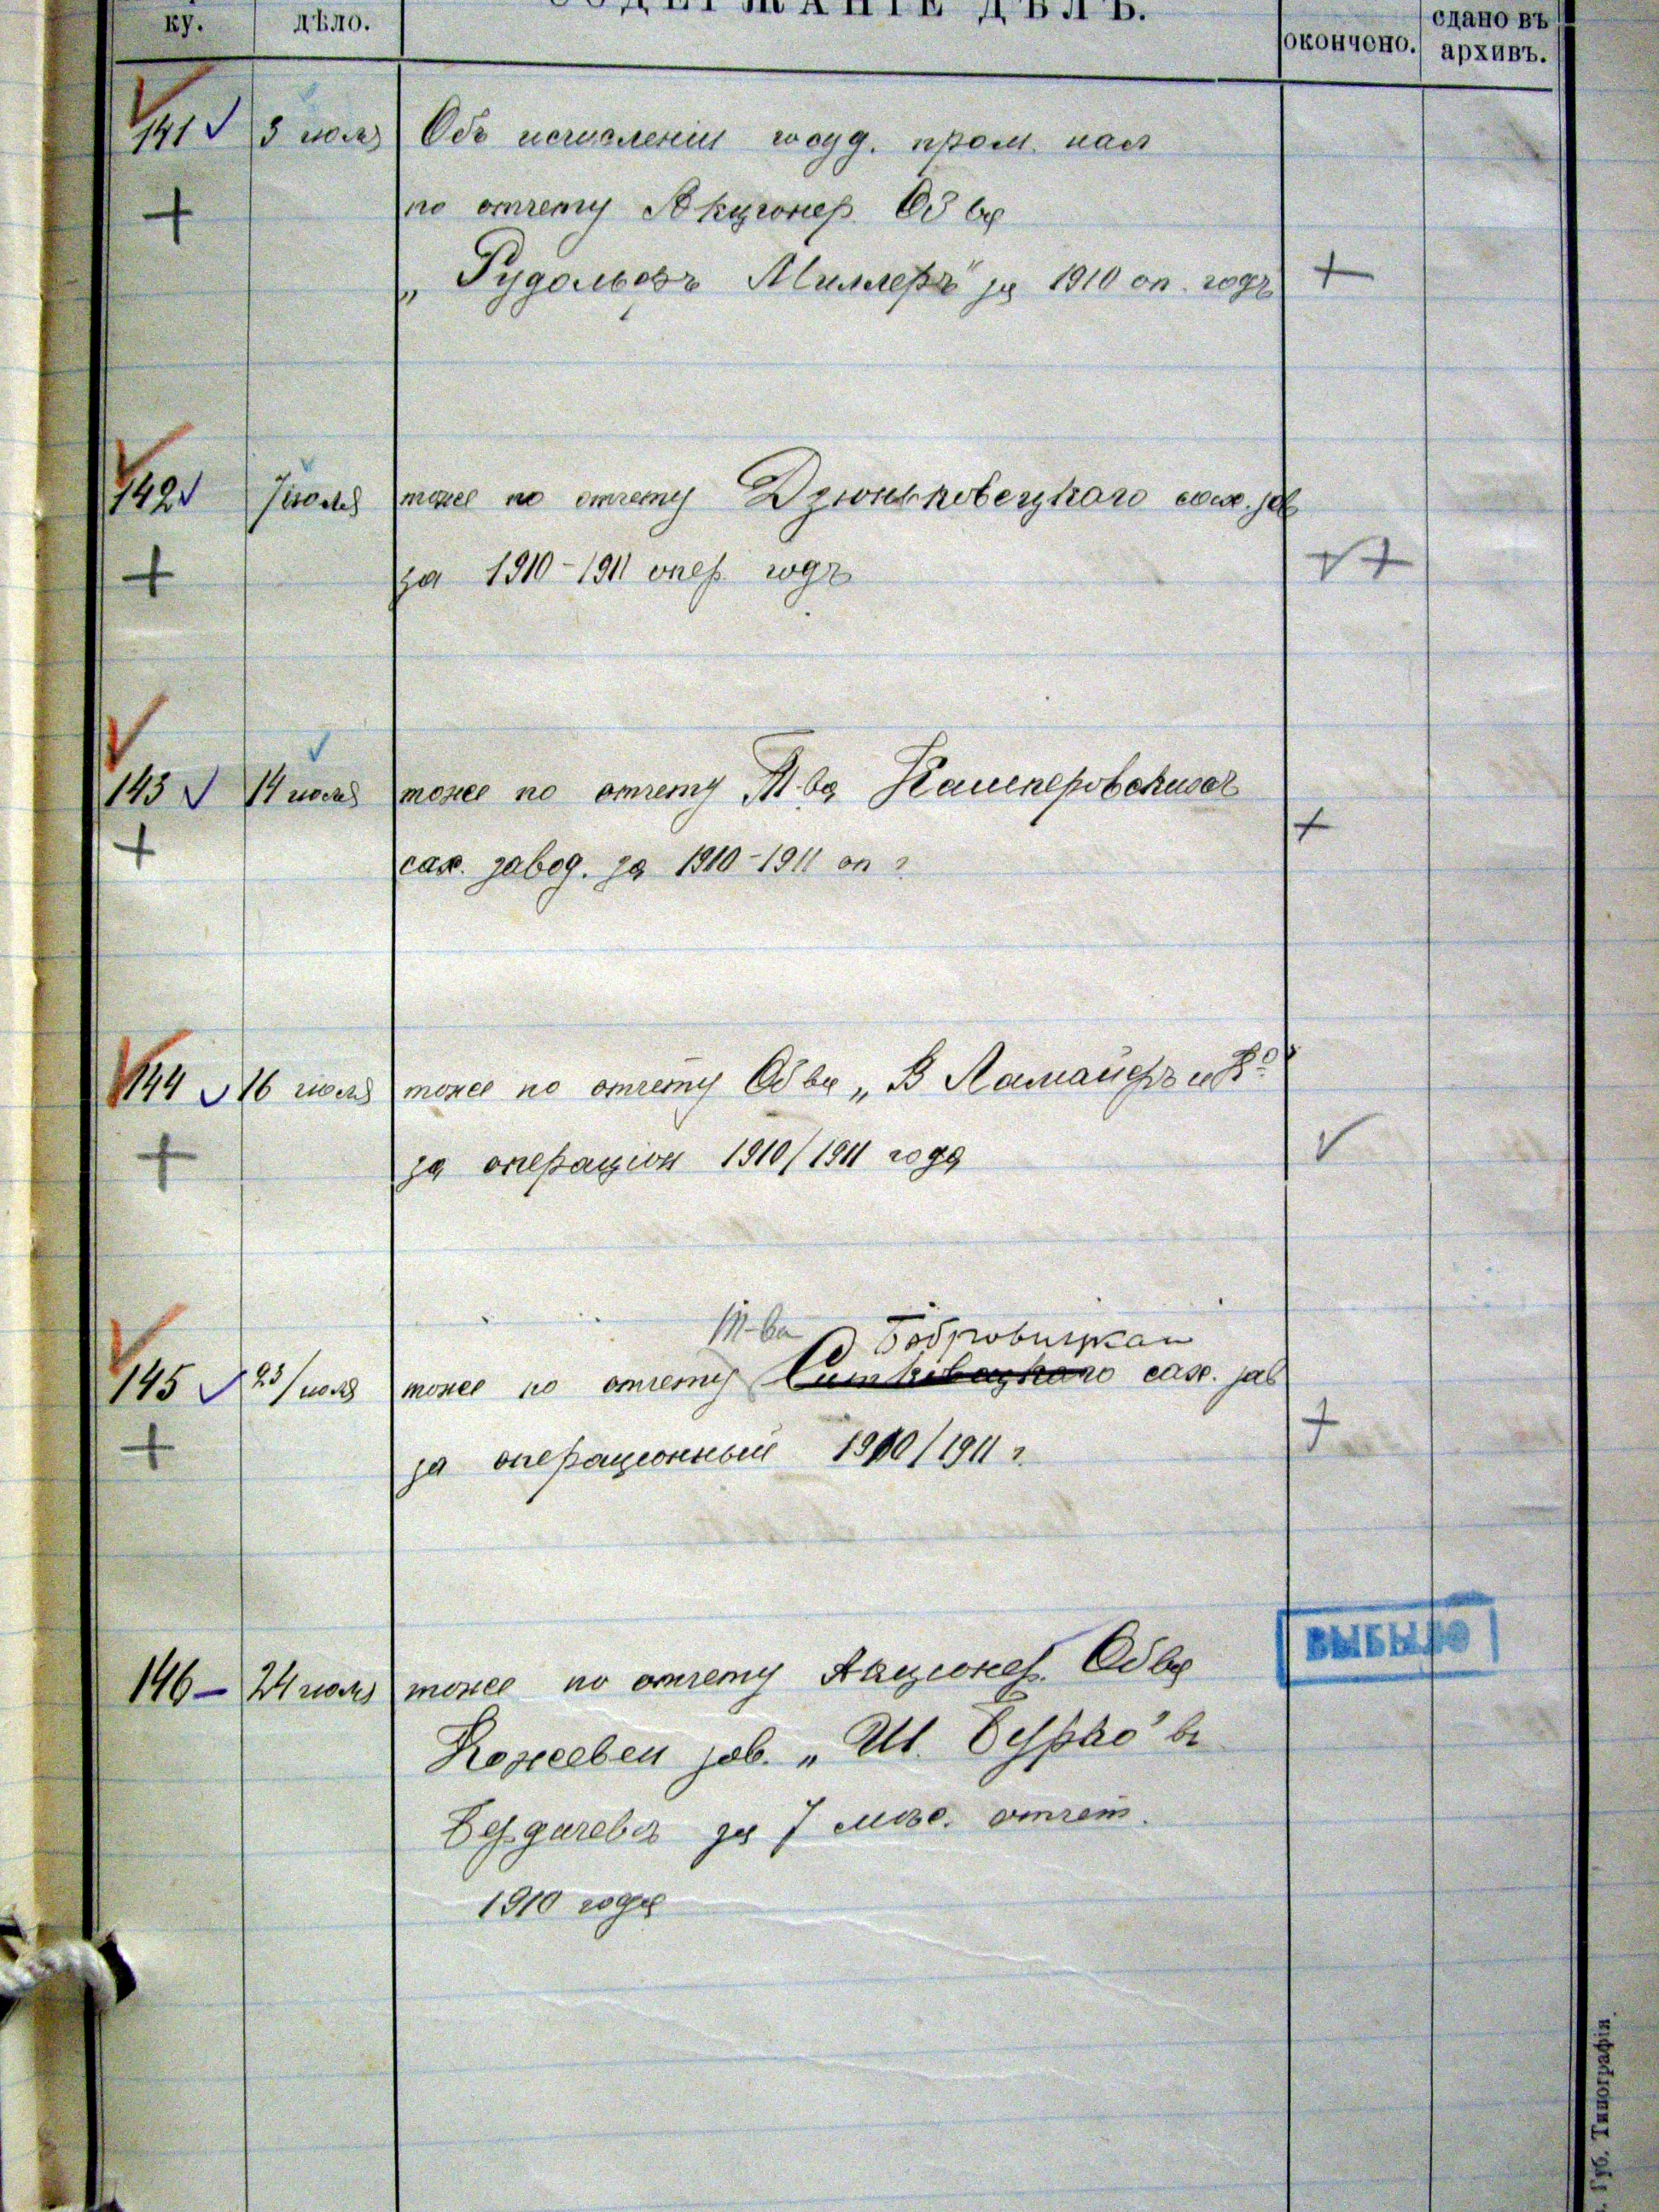 ку. дѣло. СОДЕРЖАНІЕ ДѢЛЪ. окончено. сдано въ
архивъ.
141 3 июля Объ исчисленіи госуд. пром. нал
по отчету Акціонер. Об ва
„Рудольфъ Миллеръ" за 1910 оп. годъ
142 7 июля тоже по отчету Дзюньковецкаго сах. зав
за 1910-1911 опер. годъ
143 14 июля тоже по отчету Т-ва Кашперовскихъ
сах. завод. за 1910-1911 оп г
144 16 июля тоже по отчету Об ва „В Ламайеръ и Ко"
за операціон 1910/1911 года
т-ва Бобровицкаи
145 23/июля тоже по отчету Ситковецкаго сах. зав
за операционный 1910/1911 г.
ВЫБЫЛО
146 24 июля тоже по отчету Акціонер. Об ва
Кожевен зав. „Ш. Бурко" въ
Бердичевѣ за 7 мѣс. отчет.
1910 года
Губ. Типографія.